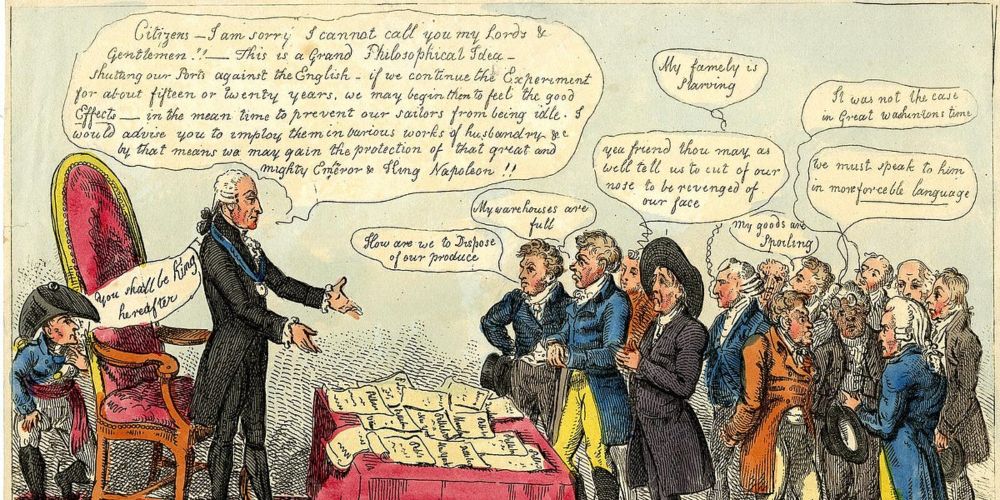 Citizens – I am sorry I cannot call you my Lords &
Gentlemen!! – This is a Grand Philosophical Idea –
shutting our Ports against the English – if we continue the Experiment
for about fifteen or twenty years, we may begin then to feel the good
Effects – in the mean time to prevent our sailors from being idle. I
would advise you to imploy them in various works of husbandry &c
by that means we may gain the protection of that great and
mighty Emperor & King Napoleon!!
You shall be King
hereafter
How are we to Dispose
of our produce
My warehouses are
full
My famely is
Starving
yea friend thou may as
well tell us to cut of our
nose to be revenged of
our face
my goods are
Spoiling
It was not the case
in Great washintons time
we must speak to him
in more forceble language